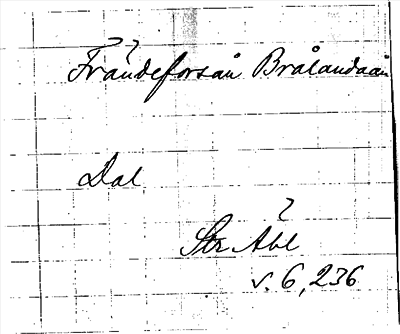 ? ?
Frändeforsån Brålandaån
Dal
?
Str Åbl
s. 6, 236